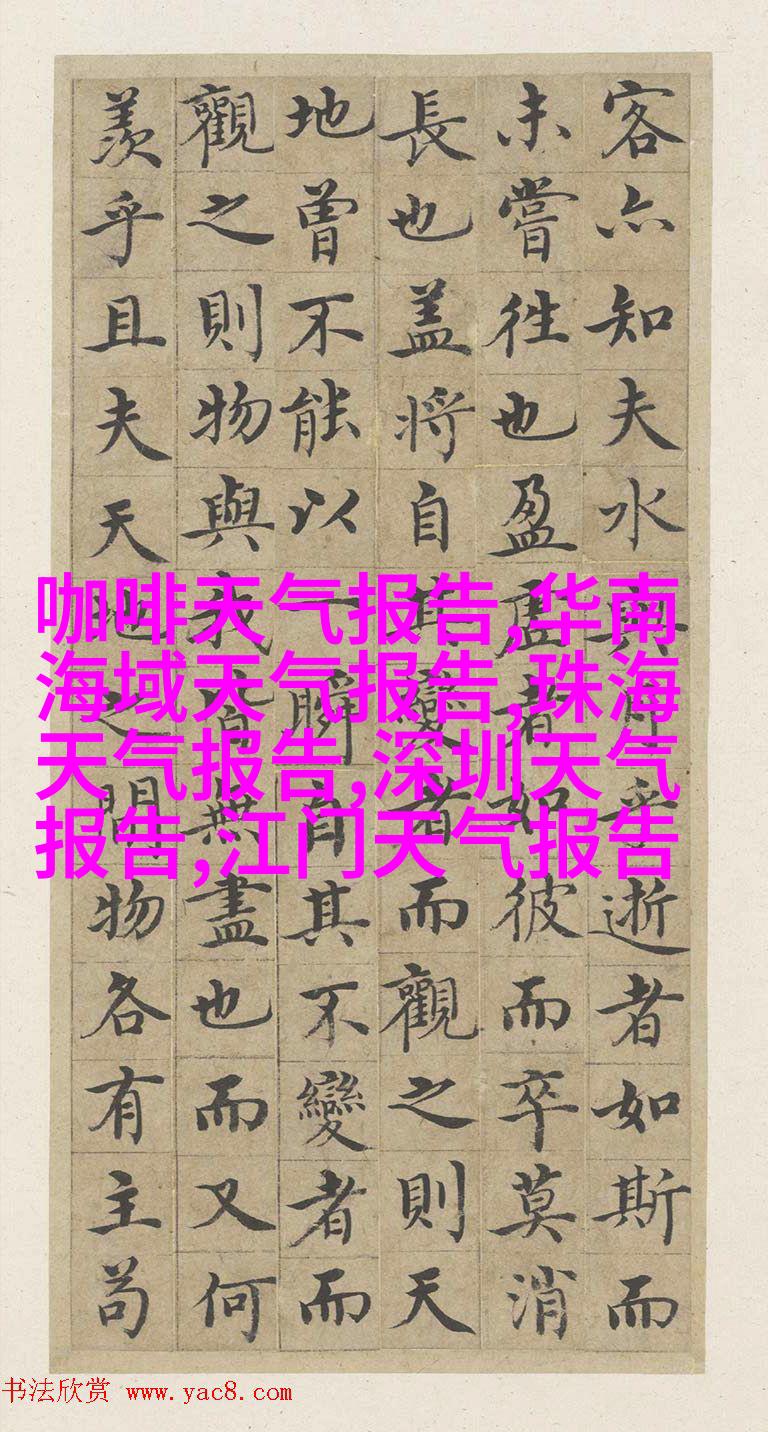 客亦知夫水與月乎逝者如斯而
未嘗往也盈虛者如彼而卒莫消
長也蓋將自其變者而觀之則天
地曾不能以一瞬自其不變者而
觀之則物與我皆無盡也而又何
羨乎且夫天地之間物各有主苟
咖啡天气报告,华南
海域天气报告,珠海
天气报告,深圳天气
报告,江门天气报告
书法欣赏 www.yac8.com